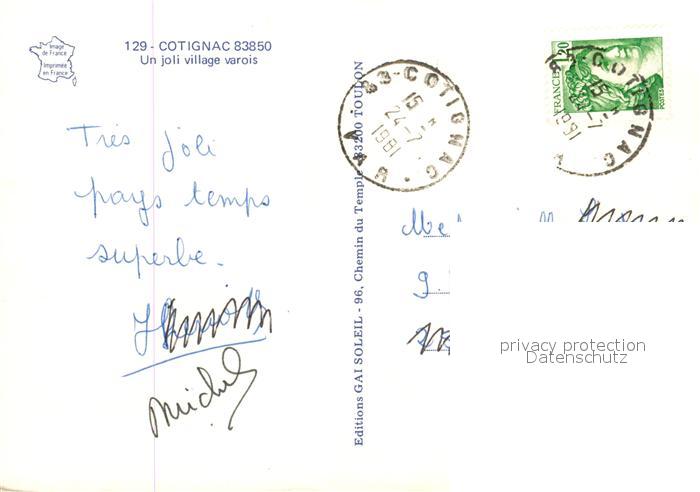 Image
de France
Imprimée
en France
129 - COTIGNAC 83850
Un joli village varois
Très joli
pays temps
superbe.
Michel
Editions GAI SOLEIL - 96, Chemin du Temple - 83200 TOULON
83-COTIGNAC
VAR
15 H
24-7
1981
1,20
FRANCE
POSTES
COTIGNAC
15
24-7
1981
privacy protection
Datenschutz